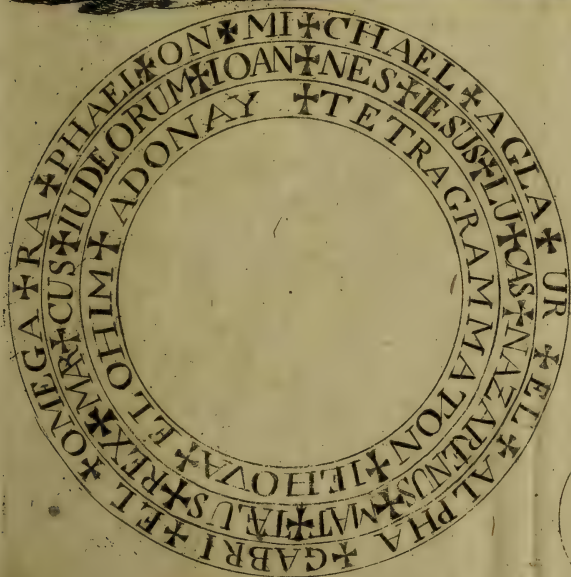 MI✠CHAEL✠AGLA✠UR✠EL✠ALPHA✠GABRI✠EL✠OMEGA✠RA✠PHAEL✠ON✠
IOAN✠NES✠IESUS✠LU✠CAS✠NAZARENUS✠MAT✠TÆUS✠REX✠MAR✠CUS✠IUDEORUM✠
✠TETRAGRAMMATON✠IEHOVA✠ELOHIM✠ADONAY